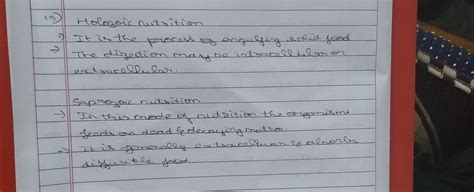 19) Holozoic nutrition
→ It is the process of engulfing solid food
→ The digestion may be intracellular or
extracellular.
Saprozoic nutrition
→ In this mode of nutrition the organism
feeds on dead & decaying matter
→ It is generally extracellular & absorbs
diffusible food